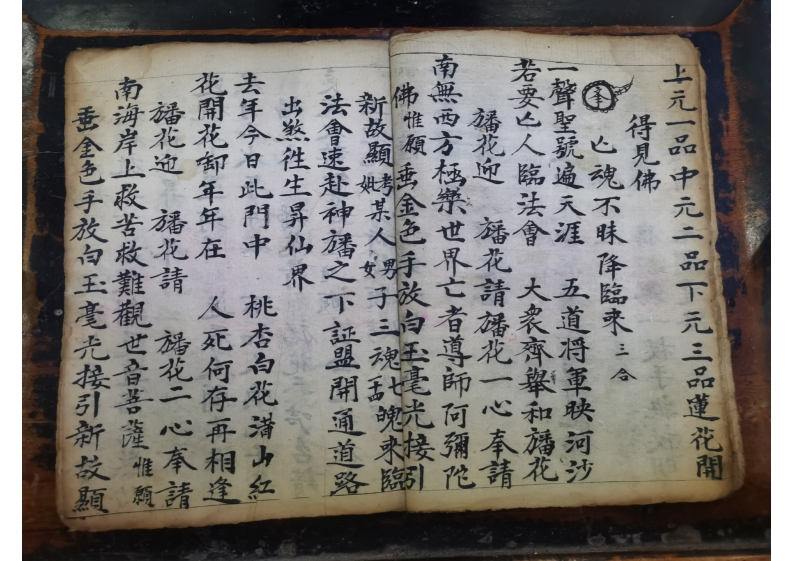 上元一品中元二品下元三品蓮花開
得見佛
亡魂不昧降臨來三合
一聲聖號遍天涯 五道将軍映河沙
若要亡人臨法會 大衆齊舉和旛花
旛花迎 旛花請旛花一心奉請
南無西方極樂世界亡者導師阿彌陀
佛惟願垂金色手放白玉毫光接引
新故顯考妣某人男女子三魂七魄來臨
法會速赴神旛之下証盟開通道路
出煞徃生昇仙界
去年今日此門中 桃杏白花满山紅
花開花卸年年在 人死何存再相逢
旛花迎 旛花請 旛花二心奉請
南海岸上救苦救難觀世音菩薩惟願
垂金色手放白玉毫光接引新故顯